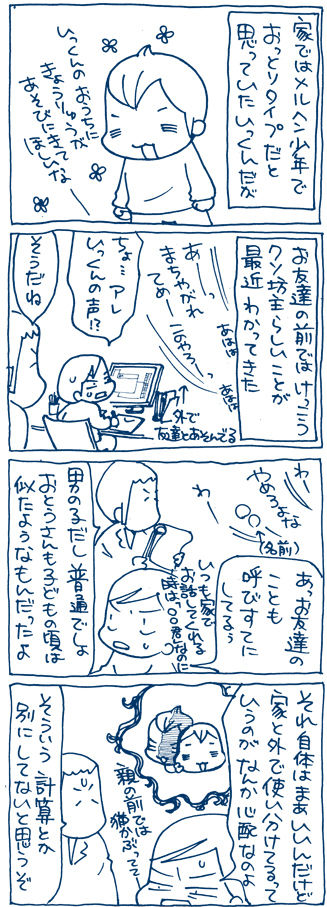 家ではメルヘン少年で
おっとりタイプだと
思っていたいっくんだが
いっくんのおうちに
きょうりゅうが
あそびにきて
ほしいな
お友達の前ではけっこう
クソ坊主らしいことが
最近わかってきた
あーっ
まちやがれ
てめーこのやろーっ
あはは
あはは
ちょ…アレ
いっくんの声!?
そうだね
外で
友達とあそんでる
わー
やめろよな
○○
(名前)
わー
あっお友達の
ことも
呼びすてに
してるぅ
いつも家で
お話してくれる
時は、○○君なのに
男の子だし普通でしょ
おとうさんも子どもの頃は
似たようなもんだったよ
それ自体はまあいいんだけど
家と外で使い分けてるって
いうのがなんか心配なのよ
親の前では
猫かぶってて、
そういう計算とか
別にしてないと思うぞ